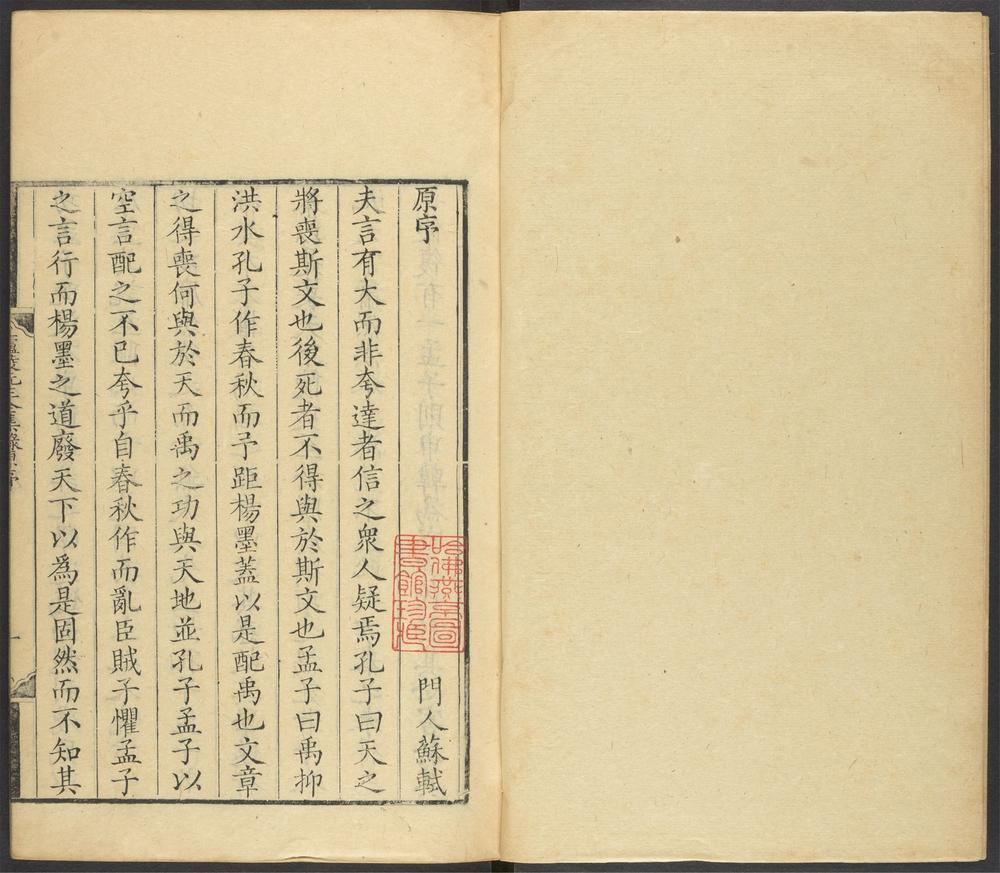 原序
門人蘇軾
夫言有大而非夸達者信之衆人疑焉孔子曰天之
將喪斯文也後死者不得與於斯文也孟子曰禹抑
洪水孔子作春秋而予距楊墨蓋以是配禹也文章
之得喪何與於天而禹之功與天地並孔子孟子以
空言配之不已夸乎自春秋作而亂臣賊子懼孟子
之言行而楊墨之道廢天下以爲是固然而不知其
哈佛燕京圖
書館珍藏